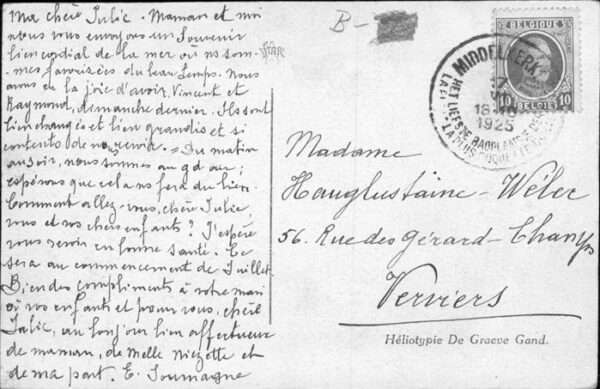 Ma chère Julie. Maman et moi
nous vous envoyons un souvenir
bien cordial de la mer où ns som-
mes favorisées du beau temps. Nous
avons eu la joie d'avoir Vincent et
Raymond, dimanche dernier. Ils sont
bien changés et bien grandis et si
contents de ns revoir. Du matin
au soir, nous sommes au gd air;
espérons que cela ns fera du bien.
Comment allez-vous, chère Julie,
vous et vos chers enfants? J'espère
vous revoir en bonne santé. Ce
sera au commencement de Juillet.
Bien des compliments à votre mari
à vos enfants et pour vous, chère
Julie, un bonjour bien affectueux
de maman, de Melle Niezette et
de ma part. E. Soumagne
B-
BELGIQUE
10 BELGIË 10
MIDDELKERKE
17
18-19
1925
HET LIEFSTE BADPLAATSJE
LA PLUS COQUETTE
Madame
Hauglustaine-Wéler
56, Rue des Gérard-Champs
Verviers
Héliotypie De Graeve Gand.